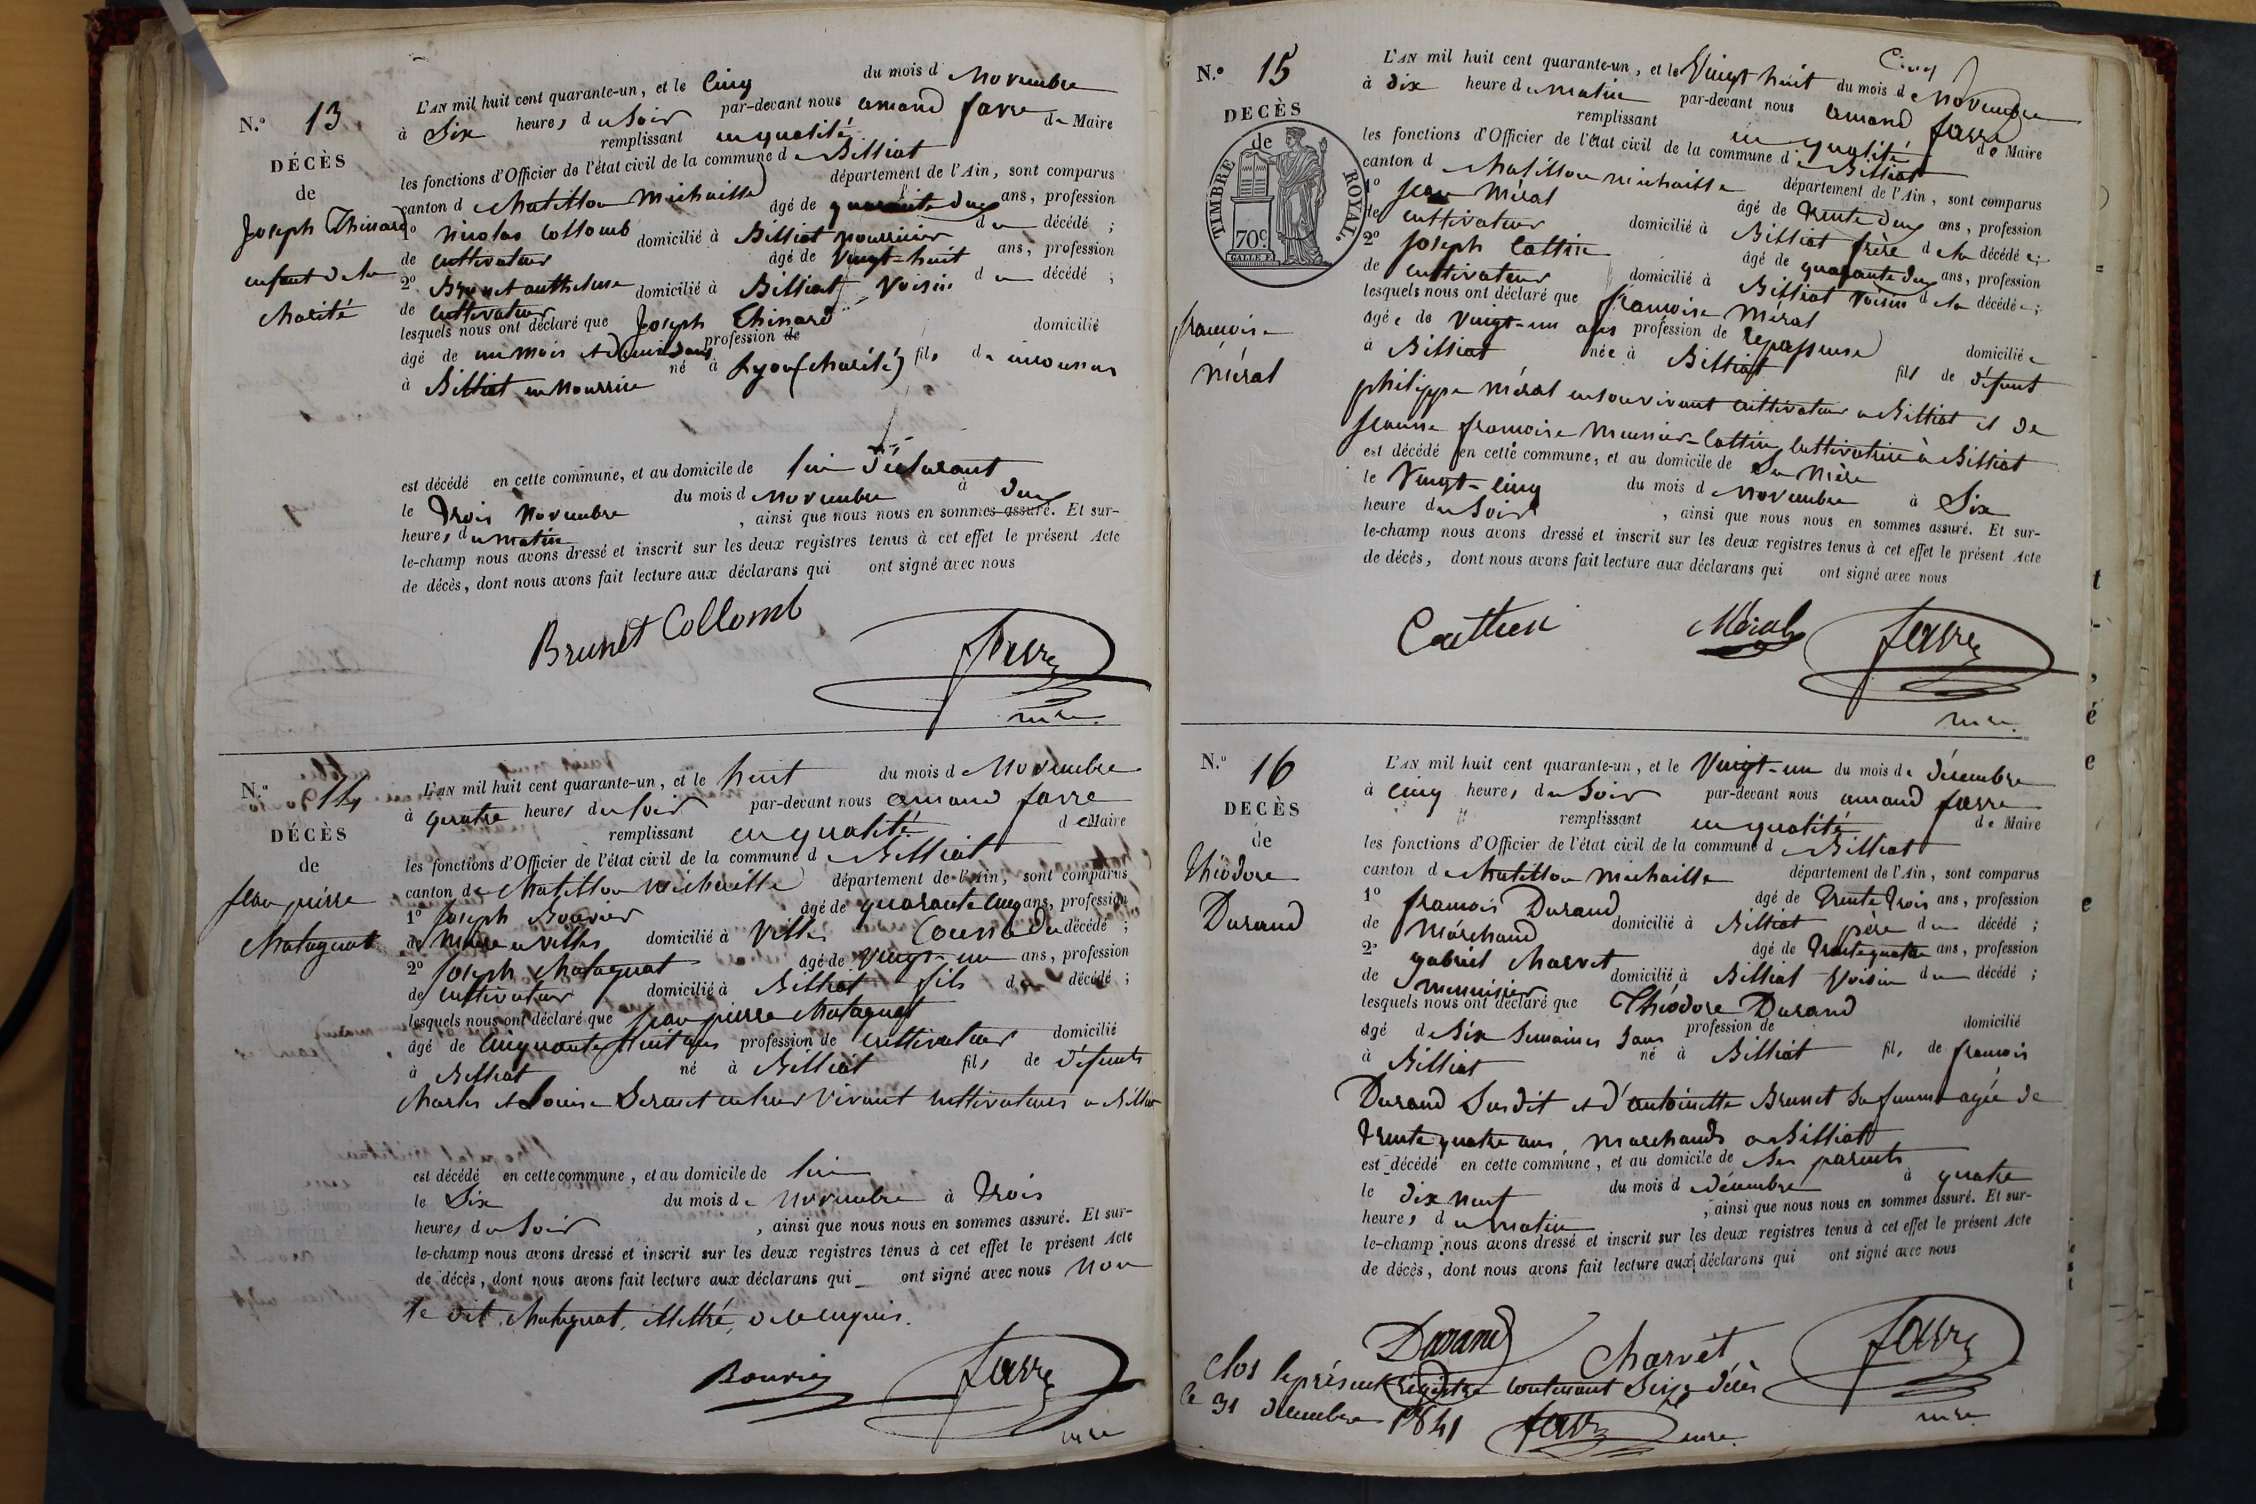 N.º 13
DÉCÈS
de
Joseph Thinard
enfant de la
charité
L'AN mil huit cent quarante-un, et le cinq du mois d novembre
à six heures du soir par-devant nous amand favre
remplissant en qualité de Maire
les fonctions d'Officier de l'état civil de la commune d Billiat
canton d chatillon michaille département de l'Ain, sont comparus
1º nicolas Collomb âgé de quarante deux ans, profession
de cultivateur domicilié à Billiat nourricier du décédé ;
2º Brunet anthelme âgé de vingt-huit ans, profession
de cultivateur domicilié à Billiat voisin du décédé ;
lesquels nous ont déclaré que Joseph Thinard
âgé de un mois et profession de domicilié
à Billiat en nourrice né à Lyon (charité) fils de inconnus
est décédé en cette commune, et au domicile de lui déclarant
le trois novembre du mois d novembre à deux
heures du matin , ainsi que nous nous en sommes assuré. Et sur-
le-champ nous avons dressé et inscrit sur les deux registres tenus à cet effet le présent Acte
de décès, dont nous avons fait lecture aux déclarans qui ont signé avec nous
Brunet Collomb
favre
mre
N.º 14
DÉCÈS
de
Jean pierre
Matagnat
L'AN mil huit cent quarante-un, et le huit du mois de Novembre
à quatre heures du soir par-devant nous amand favre
remplissant en qualité de Maire
les fonctions d'Officier de l'état civil de la commune d Billiat
canton de chatillon michaille département de l'Ain, sont comparus
1º Joseph Bouvier âgé de quarante cinq ans, profession
de Maire a villes domicilié à Villes Cousin du décédé ;
2º Joseph Matagnat âgé de vingt-un ans, profession
de cultivateur domicilié à Billiat fils du décédé ;
lesquels nous ont déclaré que Jean pierre Matagnat
âgé de cinquante huit ans profession de cultivateur domicilié
à Billiat né à Billiat fils de défunts
charles et Louise Brunet en leur vivant cultivateurs a Billiat
est décédé en cette commune, et au domicile de lui
le six du mois de novembre à trois
heures du soir , ainsi que nous nous en sommes assuré. Et sur-
le-champ nous avons dressé et inscrit sur les deux registres tenus à cet effet le présent Acte
de décès, dont nous avons fait lecture aux déclarans qui ont signé avec nous non
le dit Matagnat, illettré, de ce enquis.
Bouvier
favre
mre
N.º 15
DÉCÈS
de
TIMBRE ROYAL.
70c
françoise
Méral
L'AN mil huit cent quarante-un, et le Vingt huit du mois d Novembre
à dix heure du matin par-devant nous amand favre
remplissant en qualité de Maire
les fonctions d'Officier de l'état civil de la commune d Billiat
canton d chatillon michaille département de l'Ain, sont comparus
1º Jean Méral âgé de trente deux ans, profession
de cultivateur domicilié à Billiat frère de la décédée ;
2º Joseph Cattin âgé de quarante deux ans, profession
de cultivateur domicilié à Billiat voisin de la décédée ;
lesquels nous ont déclaré que françoise Méral
âgée de vingt-un ans profession de repasseuse domiciliée
à Billiat née à Billiat fils de défunt
philippe Méral en son vivant cultivateur a Billiat et de
Jeanne françoise Meunier-Cattin cultivatrice à Billiat
est décédé en cette commune, et au domicile de sa mère
le Vingt-cinq du mois d novembre à six
heure du soir , ainsi que nous nous en sommes assuré. Et sur-
le-champ nous avons dressé et inscrit sur les deux registres tenus à cet effet le présent Acte
de décès, dont nous avons fait lecture aux déclarans qui ont signé avec nous
Méral
favre
mre
N.º 16
DECÈS
de
Théodore
Durand
L'AN mil huit cent quarante-un, et le Vingt-un du mois de décembre
à cinq heures du soir par-devant nous amand favre
remplissant en qualité de Maire
les fonctions d'Officier de l'état civil de la commune d Billiat
canton d chatillon michaille département de l'Ain, sont comparus
1º françois Durand âgé de trente trois ans, profession
de Marchand domicilié à Billiat père du décédé ;
2º gabriel charvet âgé de trentequatre ans, profession
de menuisier domicilié à Billiat voisin du décédé ;
lesquels nous ont déclaré que Théodore Durand
âgé de six semaines sans profession de domicilié
à Billiat né à Billiat fils de françois
Durand susdit et d'antoinette Brunet sa femme agée de
trente quatre ans, marchands a Billiat
est décédé en cette commune, et au domicile de ses parents
le dix neuf du mois d décembre à quatre
heures du matin , ainsi que nous nous en sommes assuré. Et sur-
le-champ nous avons dressé et inscrit sur les deux registres tenus à cet effet le présent Acte
de décès, dont nous avons fait lecture aux déclarans qui ont signé avec nous
Durand
Charvet
favre
mre
Clos le présent régistre contenant seize décès
le 31 décembre 1841
favre mre.